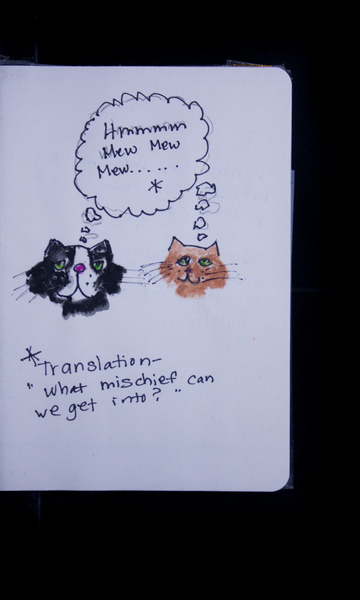 Hmmmmm
Mew Mew
Mew......
*
*Translation-
"What mischief can
we get into?"